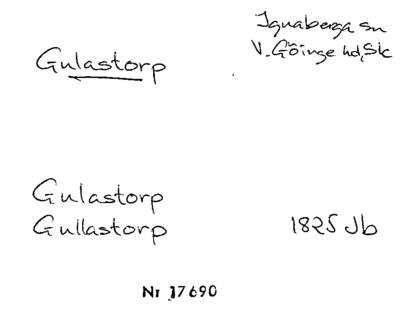 Gulastorp
Ignaberga sn
V. Göinge hd, Sk
Gulastorp
Gullastorp 1825 Jb
Nr 17690